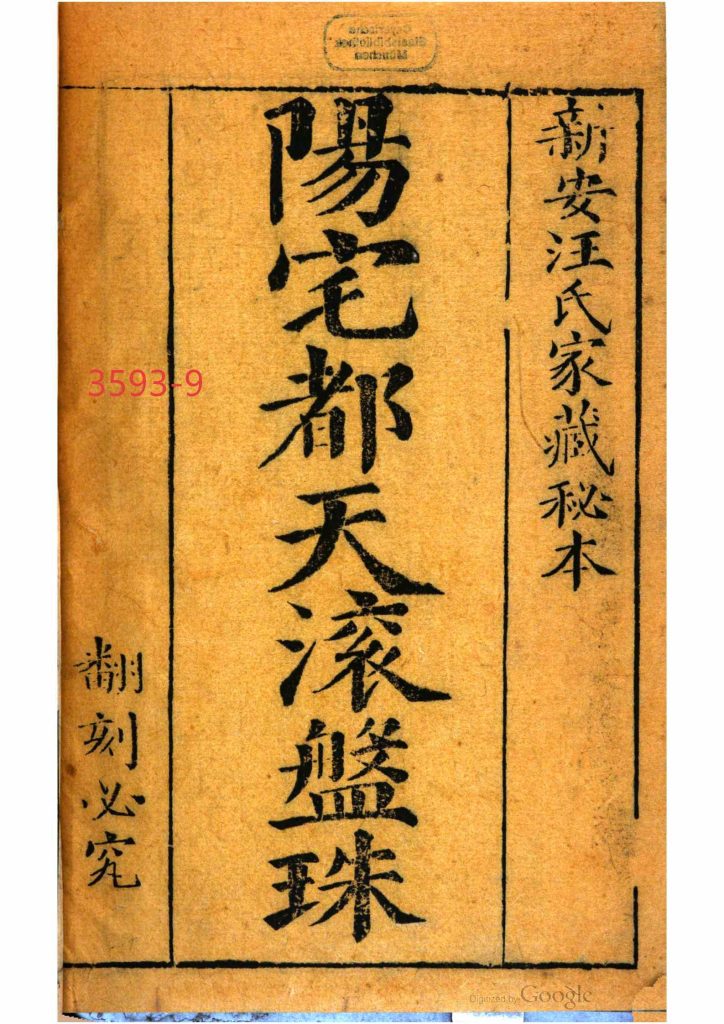 新安汪氏家藏秘本
陽宅都天滚盤珠
翻刻必究
3593-9
Bayerische
Staatsbibliothek
München
Digitized by Google